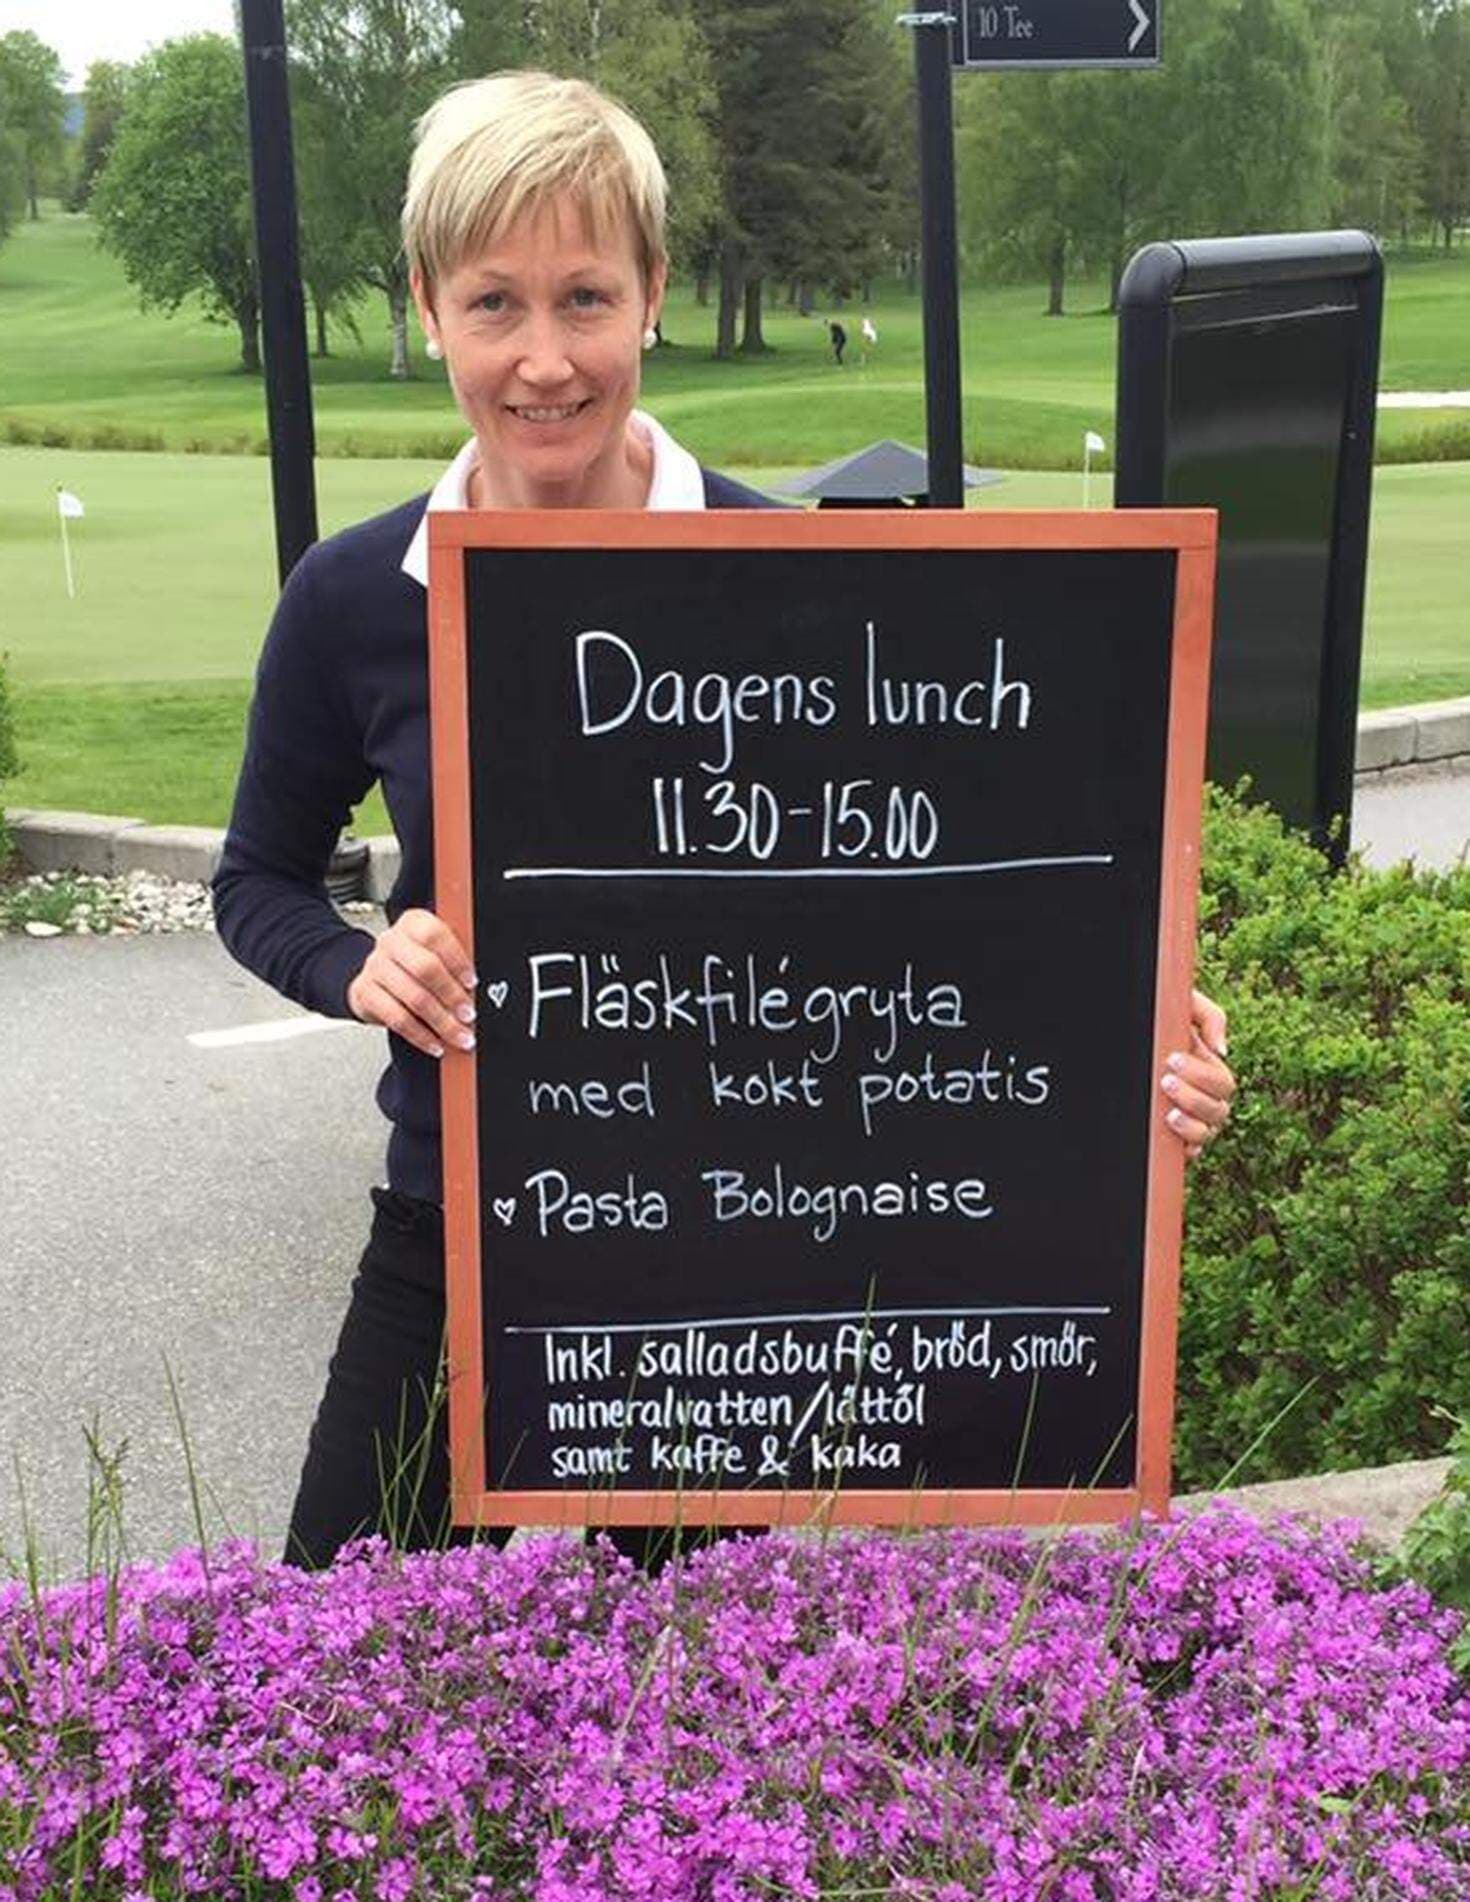 10 Tee
Dagens lunch
11.30-15.00
Fläskfilégryta
med kokt potatis
Pasta Bolognaise
Inkl. salladsbuffé, bröd, smör,
mineralvatten/lättöl
samt kaffe & kaka